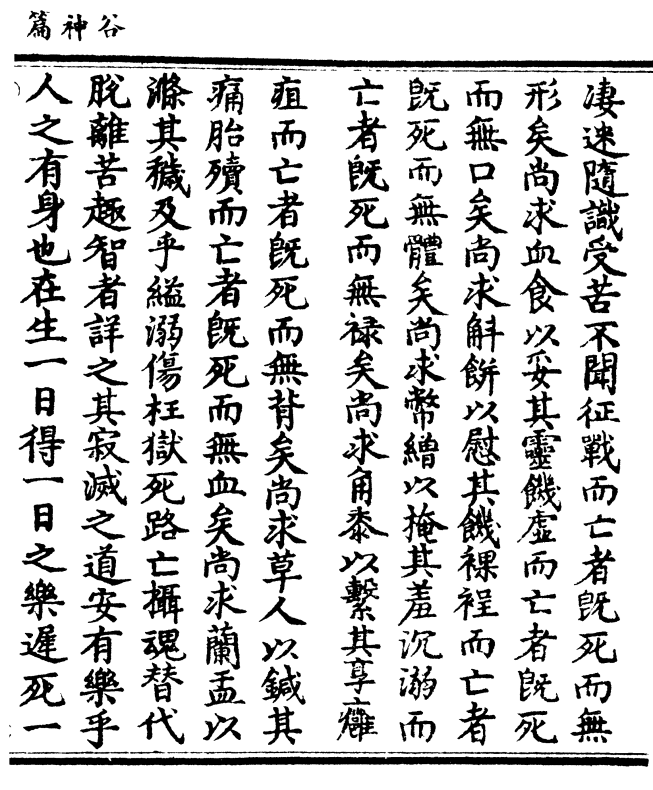 谷神篇
凄迷隨識受苦不聞征戰而亡者既死而無
形矣尚求血食以妥其靈饑虛而亡者既死
而無口矣尚求斛餅以慰其饑裸裎而亡者
既死而無體矣尚求幣繒以掩其羞沉溺而
亡者既死而無祿矣尚求角黍以繫其享癰
疽而亡者既死而無背矣尚求草人以鍼其
痛胎殰而亡者既死而無血矣尚求蘭盂以
滌其穢及乎縊溺傷枉獄死路亡攝魂替代
脫離苦趣智者詳之其寂滅之道安有樂乎
人之有身也在生一日得一日之樂遲死一